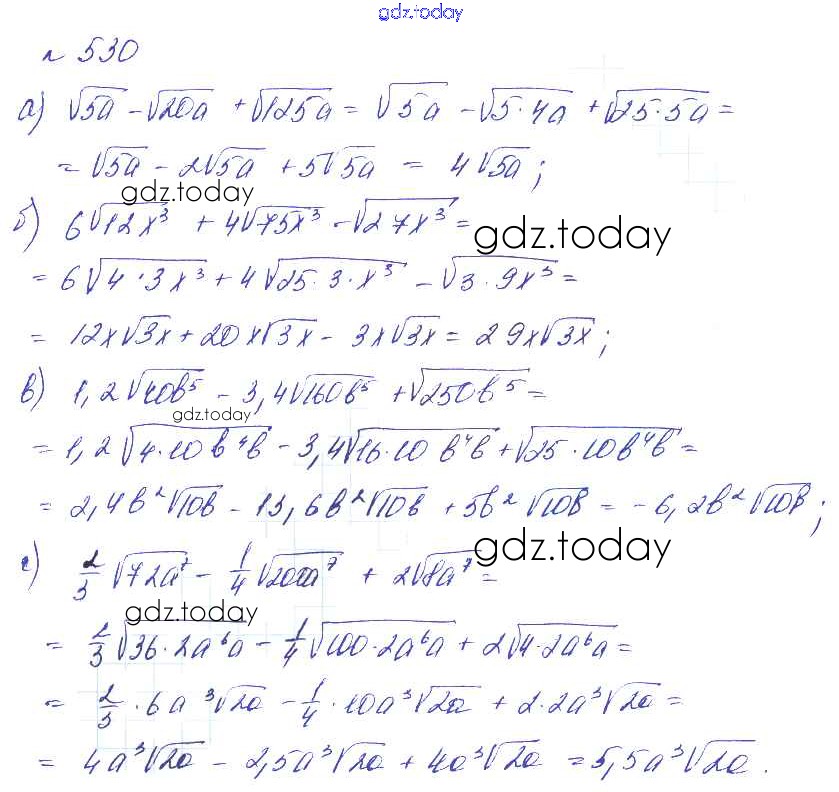 gdz.today
№ 530
а) √5a − √20a + √125a = √5a − √5·4a + √25·5a =
= √5a − 2√5a + 5√5a = 4√5a;
gdz.today
б) 6√12x³ + 4√75x³ − √27x³ =
gdz.today
= 6√4·3x³ + 4√25·3·x³ − √3·9x³ =
= 12x√3x + 20x√3x − 3x√3x = 29x√3x;
в) 1,2√40b⁵ − 3,4√160b⁵ + √250b⁵ =
gdz.today
= 1,2√4·10b⁴b − 3,4√16·10b⁴b + √25·10b⁴b =
= 2,4b²√10b − 13,6b²√10b + 5b²√10b = −6,2b²√10b;
gdz.today
г) 2/3 √72a⁷ − 1/4 √200a⁷ + 2√8a⁷ =
gdz.today
= 2/3 √36·2a⁶a − 1/4 √100·2a⁶a + 2√4·2a⁶a =
= 2/3 · 6a³√2a − 1/4 · 10a³√2a + 2·2a³√2a =
= 4a³√2a − 2,5a³√2a + 4a³√2a = 5,5a³√2a.